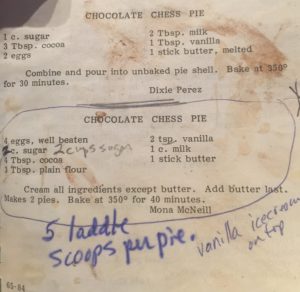 CHOCOLATE CHESS PIE
1 c. sugar 2 Tbsp. milk
3 Tbsp. cocoa 1 Tbsp. vanilla
2 eggs 1 stick butter, melted
Combine and pour into unbaked pie shell. Bake at 350°
for 30 minutes.
Dixie Perez
CHOCOLATE CHESS PIE
4 eggs, well beaten 2 tsp. vanilla
2 c. sugar 2 cups sugar 1 c. milk
4 Tbsp. cocoa 1 stick butter
3 Tbsp. plain flour
Cream all ingredients except butter. Add butter last.
Makes 2 pies. Bake at 350° for 40 minutes.
Mona McNeill
5 laddle
scoops per pie.
vanilla icecream
on top
65-84